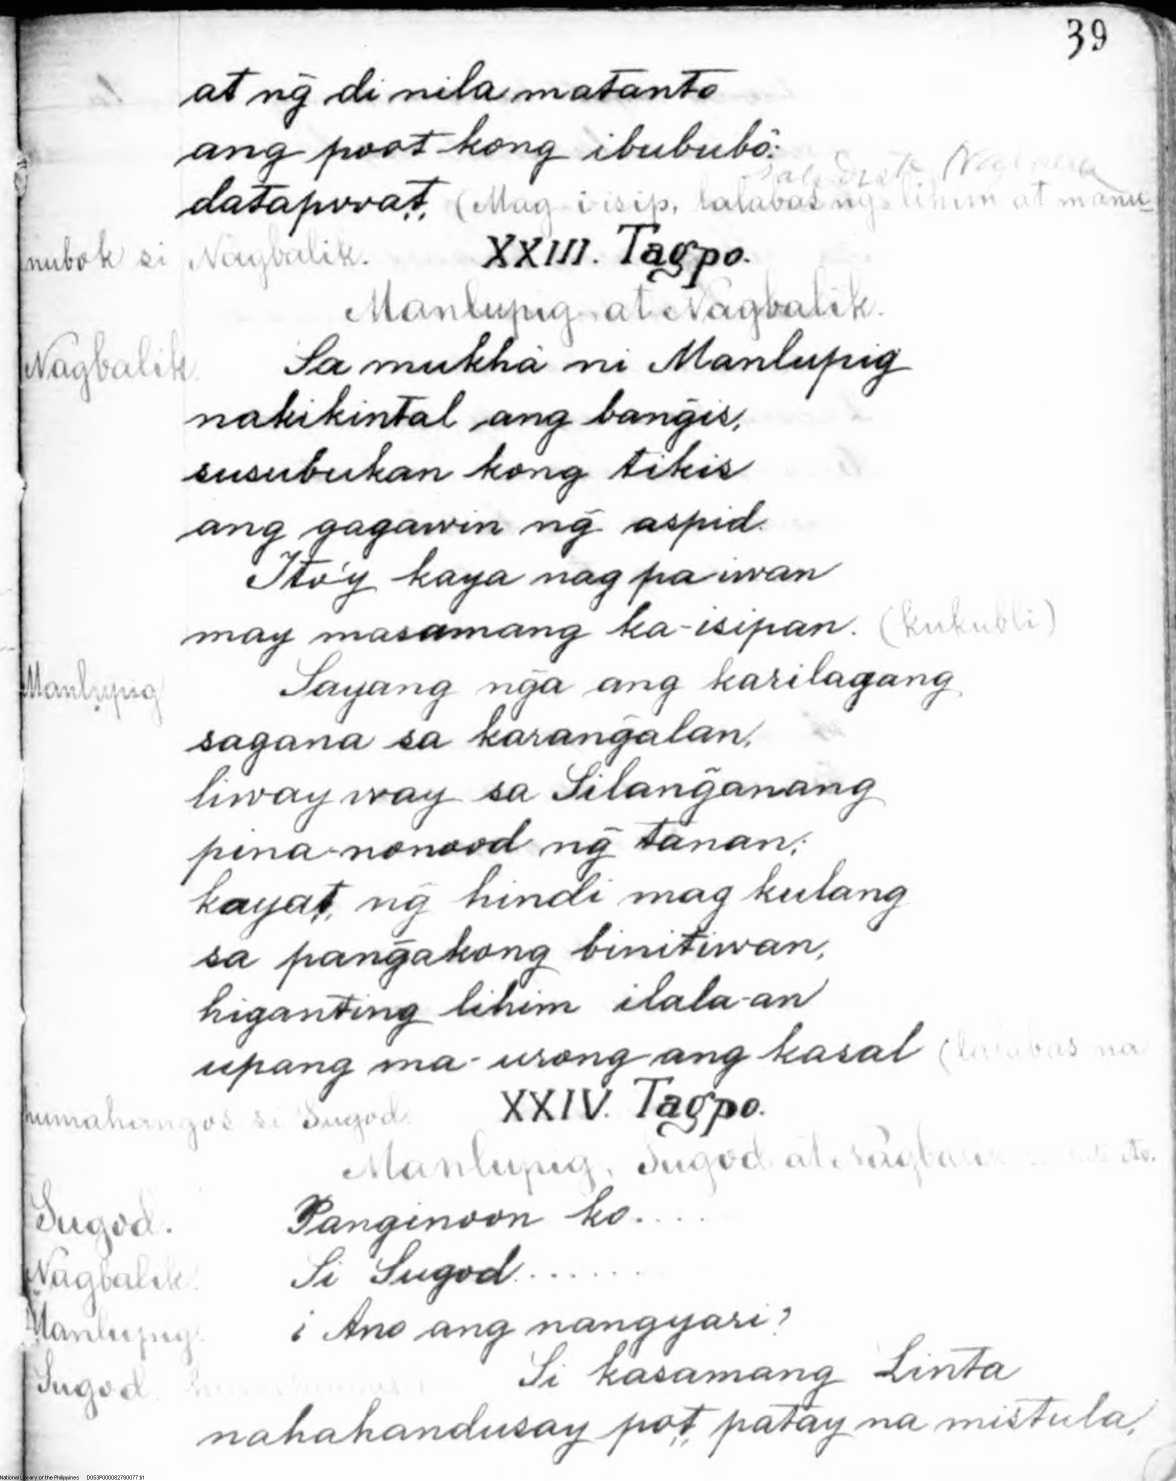 39
at ng̃ di nila matanto
ang poot kong ibububô:
datapowat, (Mag-iisip, lalabas ng lihim at manu-
nubok si Nagbalik.
XXIII. Tagpo.
Manlupig at Nagbalik.
Nagbalik. Sa mukhà ni Manlupig
nakikintal ang bang̃is,
susubukan kong tikis
ang gagawin ng̃ aspid.
Ito'y kaya nag pa iwan
may masamang ka-isipan. (kukubli)
Manlupig Sayang ng̃a ang karilagang
sagana sa karang̃alan,
liway way sa Silang̃anang
pina-nonood ng̃ tanan;
kayat, ng̃ hindi mag kulang
sa pang̃akong binitiwan,
higanting lihim ilala-an
upang ma-urong ang kasal (lalabas na
humahangos si Sugod.
XXIV. Tagpo.
Manlupig, Sugod at Nagbalik
Sugod. Panginoon ko....
Nagbalik. Si Sugod.......
Manlupig. ¿Ano ang nangyari?
Sugod. Si kasamang Linta
nahahandusay pot, patay na mistula,
National Library of the Philippines